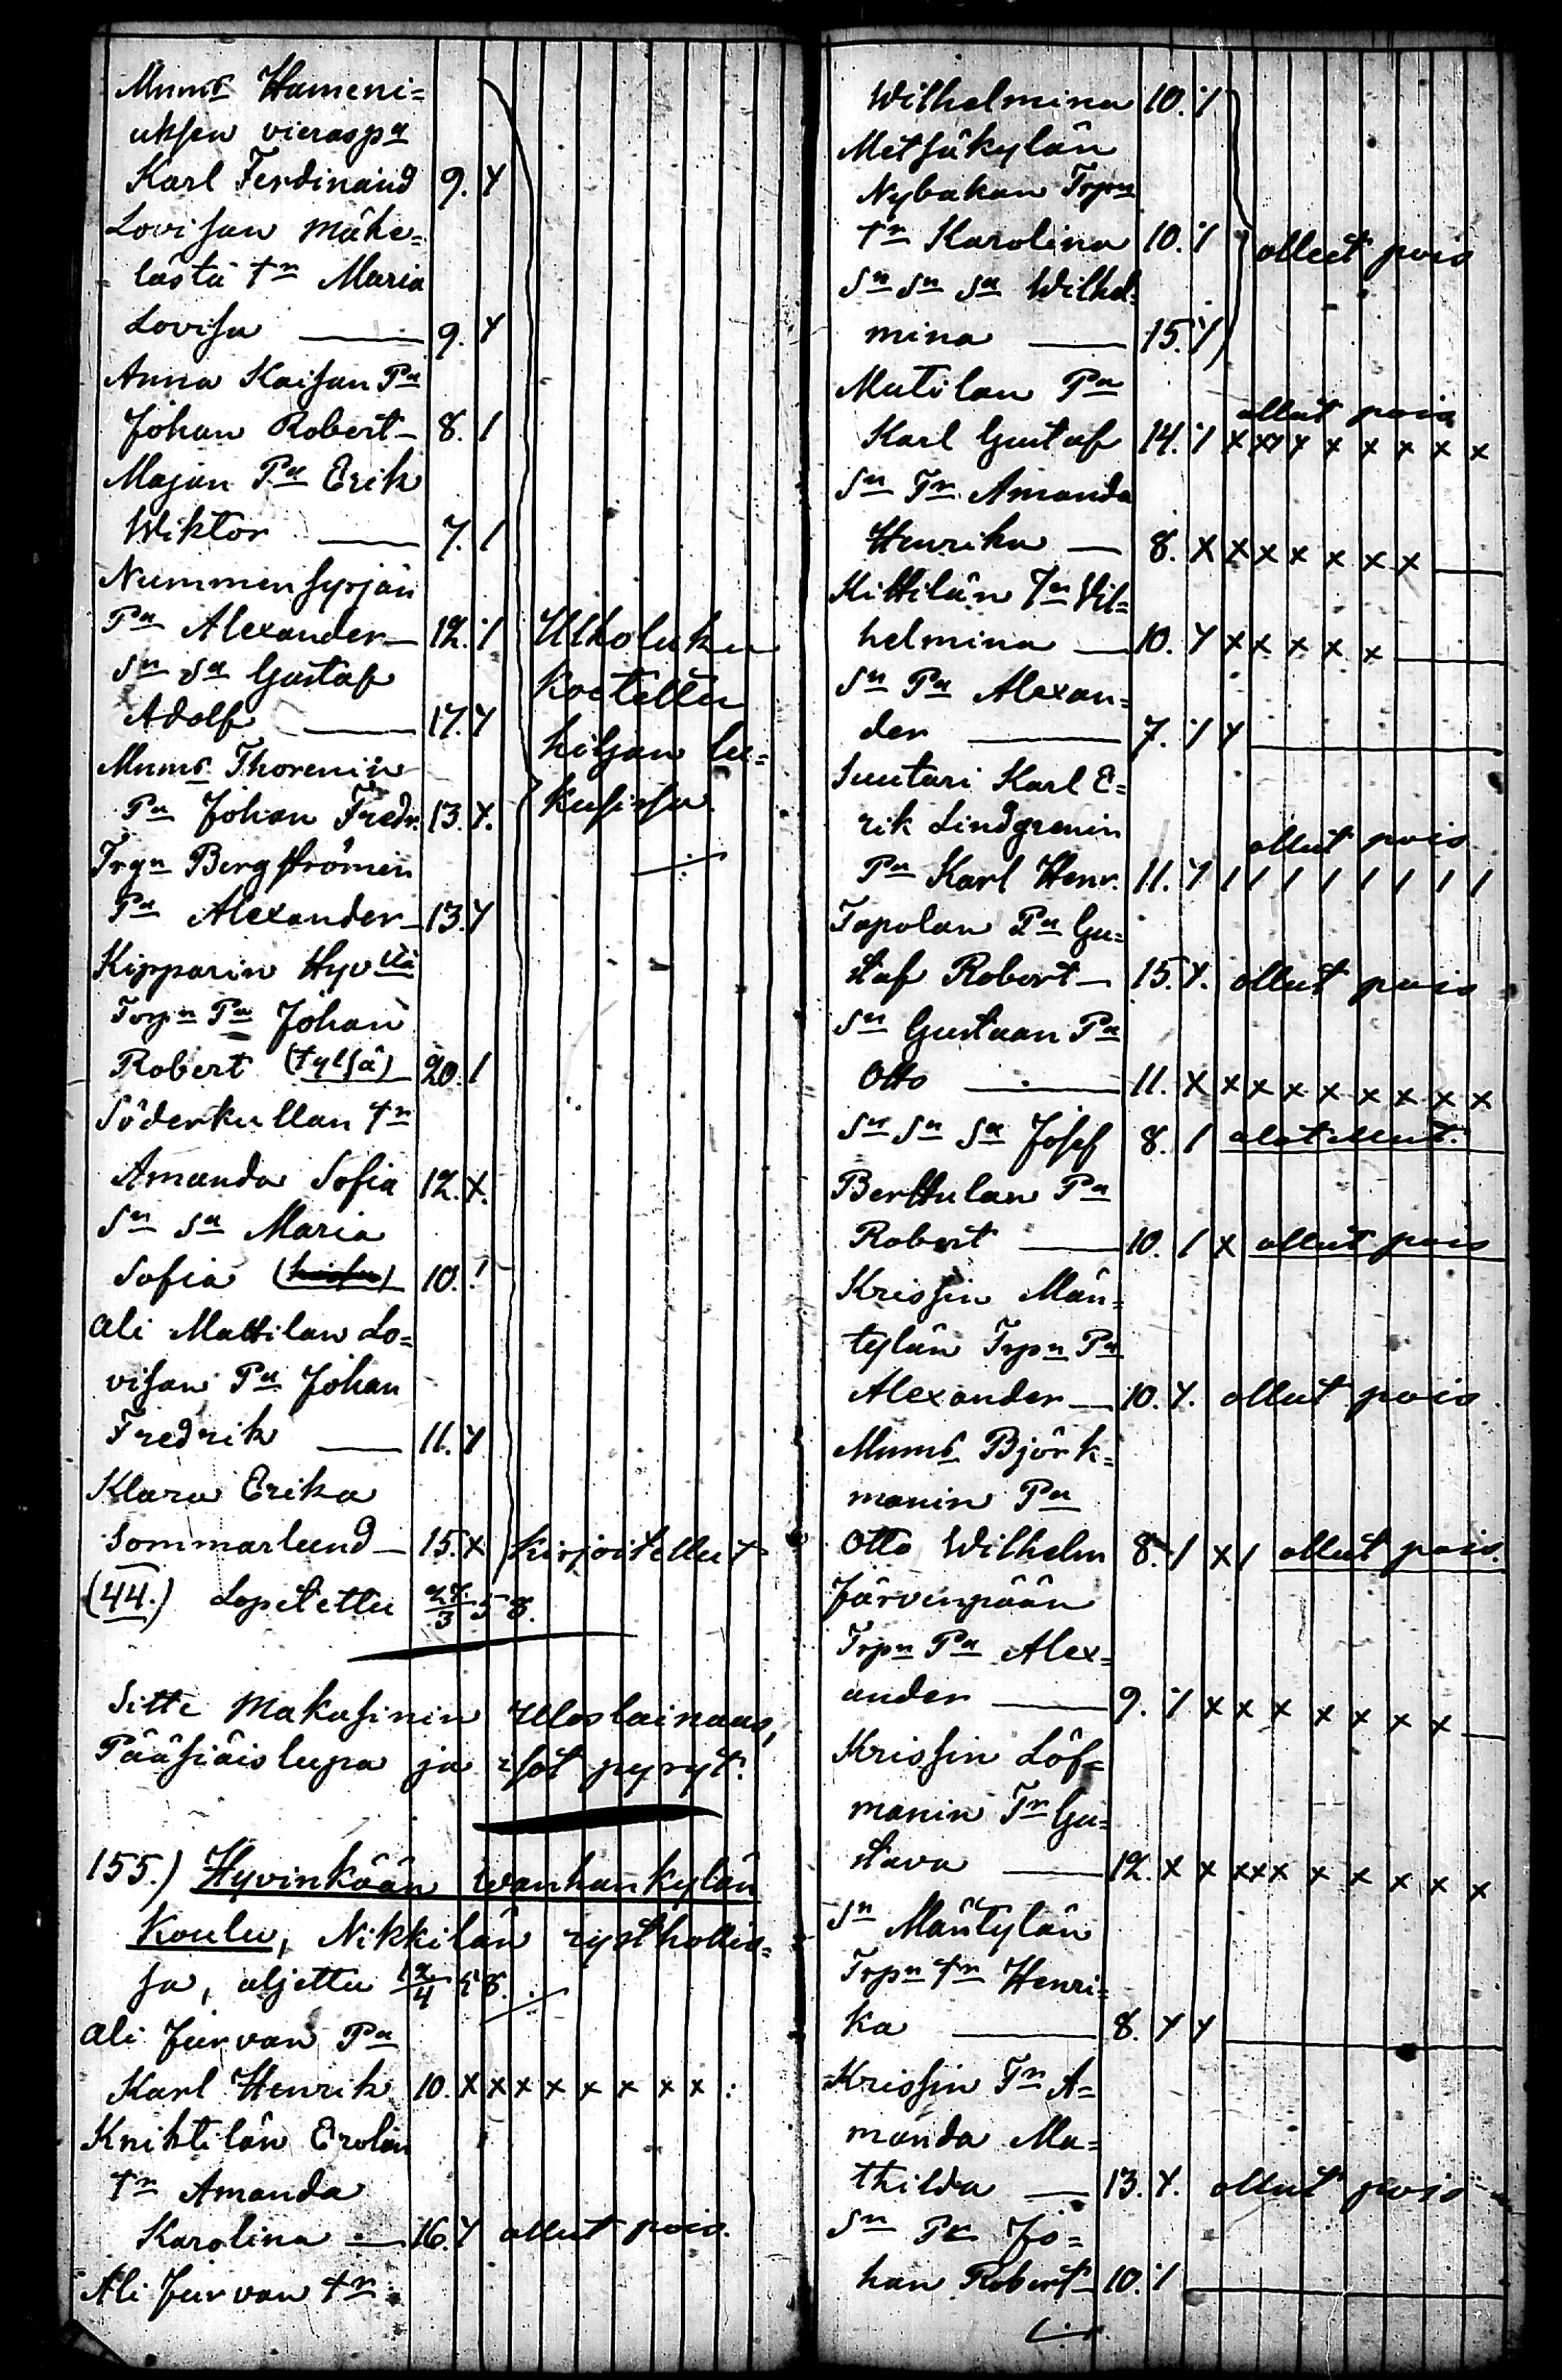 Mnms Hameni=
uksen vieraspa
Karl Ferdinand 9. Y
Lovisan Mähe=
lästä tr Maria
Lovisa — 9. Y
Anna Kaisan Pa
Johan Robert — 8. /
Majan Pa Erik
Wiktor — 7. /
Nummensyrjän
Pa Alexander — 12. ٪ Ulkoluku
Sn Sa Gustaf koetettu
Adolf — 17. Y hiljan lu=
Mnms Thorenin kusissa.
Pa Johan Fredr. 13. Y.
Trgn Bergströmin
Pa Alexander — 13. Y
Kipparin Hyvllä
Torpn Pa Johan
Robert (tylsä) 20. /
Söderkullan tr
Amanda Sofia 12. X.
Sn Sa Maria
Sofia 10. /
Ali Mattilan Lo=
visan Pa Johan
Fredrik — 11. Y
Klara Erika
Sommarlund — 15. X kirjoitellut
(44.) Lopetettu 27/3 58.
Sitte Makasinin Uloslainaus,
Pääsiäislupa ja isot pyryt.
155.) Hyvinkään wanhankylän
Koulu, Nikkilän rysthollis=
sa, aljettu 12/4 58.
Ali Jurvan Pa
Karl Henrik 10. X X X X X X X X
Knihtilän Erolan
tr Amanda
Karolina — 16. Y ollut pois.
Ali Jurvan tr
Wilhelmina 10. ٪
Metsäkylän
Nybakan Torpn
tr Karolina 10. ٪ ollut pois
Sn Sn Sa Wilhel=
mina — 15. Y
Matilan Pa
ollut pois
Karl Gustaf 14. ٪ X XYY X X X X X
Sn Tr Amanda
Henrika — 8. X X X X X X X —
Kittilän Tr Vil=
helmina — 10. Y X X X X X —
Sn Pa Alexan=
der — 7. ٪ Y —
Suutari Karl E=
rik Lindgrenin
ollut pois
Pa Karl Henr. 11. Y / / / / / / / /
Topolan Pa Gu=
staf Robert — 15. Y. ollut pois
Sn Gustaan Pa
Otto — 11. X X X X X X X X X
Sn Sn Sa Josef 8. /
Berttulan Pa
Robert — 10. / X ollut pois
Krissin Män=
tylän Trpn Pa
Alexander — 10. Y. ollut pois
Mnms Björk=
manin Pa
Otto Wilhelm 8. / X / ollut pois.
Järvenpään
Trpn Pa Alex=
ander — 9. ٪ X X X X X X X —
Krissin Löf=
manin Tr Gu=
stava — 12. X X XXX X X X X X
Sn Mäntylän
Trpn tr Henri=
ka — 8. Y Y —
Krissin Tr A=
manda Ma=
thilda — 13. Y. ollut pois
Sn Pa Jo=
han Robert — 10. ٪ —